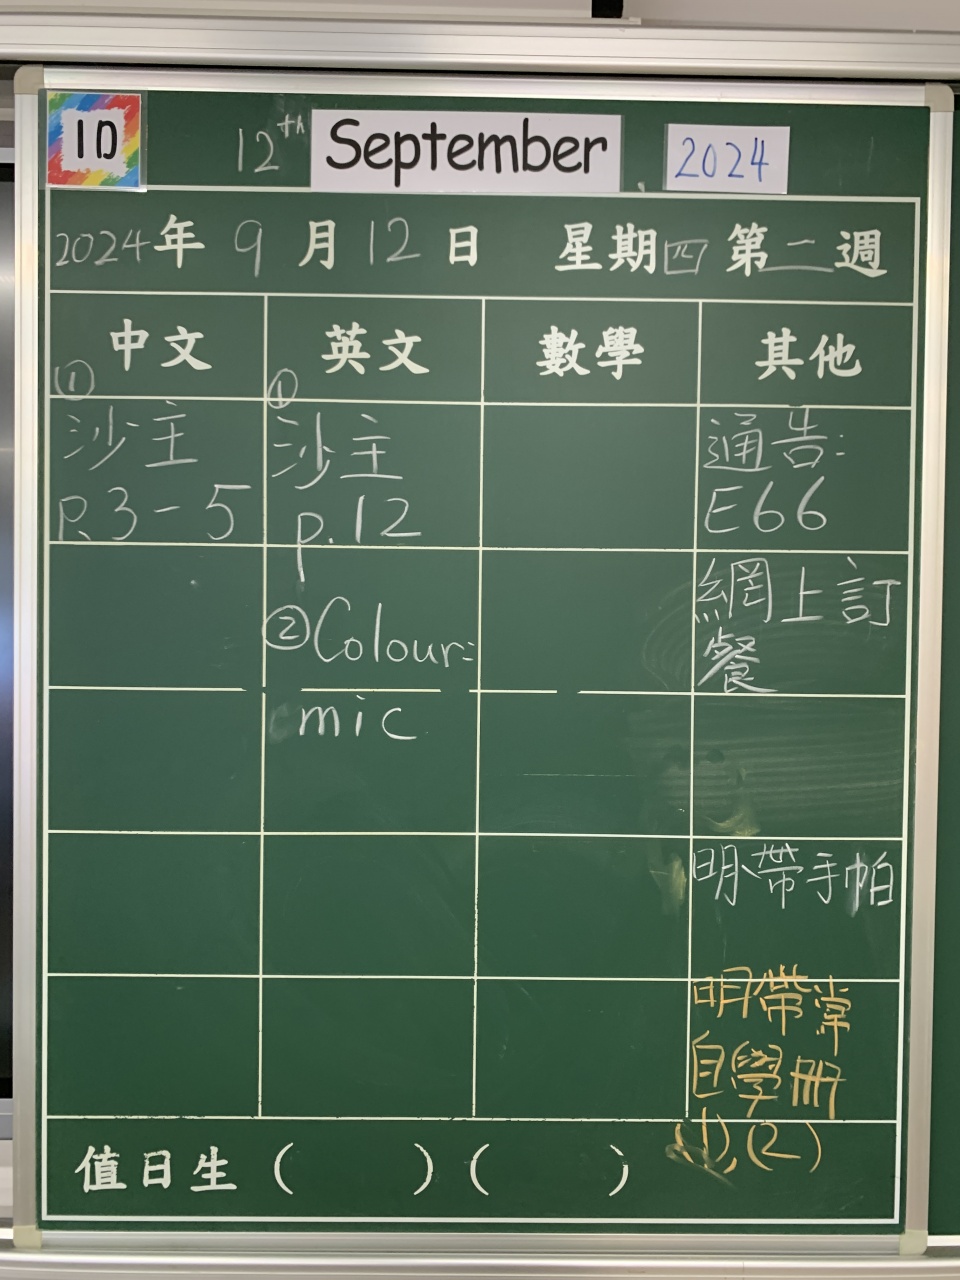 1D
12th September 2024
2024年9月12日 星期四 第二週
中文 英文 數學 其他
①
沙主
P.3-5
①
沙主
p.12
②Colour:
mic
通告:
E66
網上訂
餐
明帶手帕
明帶常
自學冊
(1),(2)
值日生 ( ) ( )